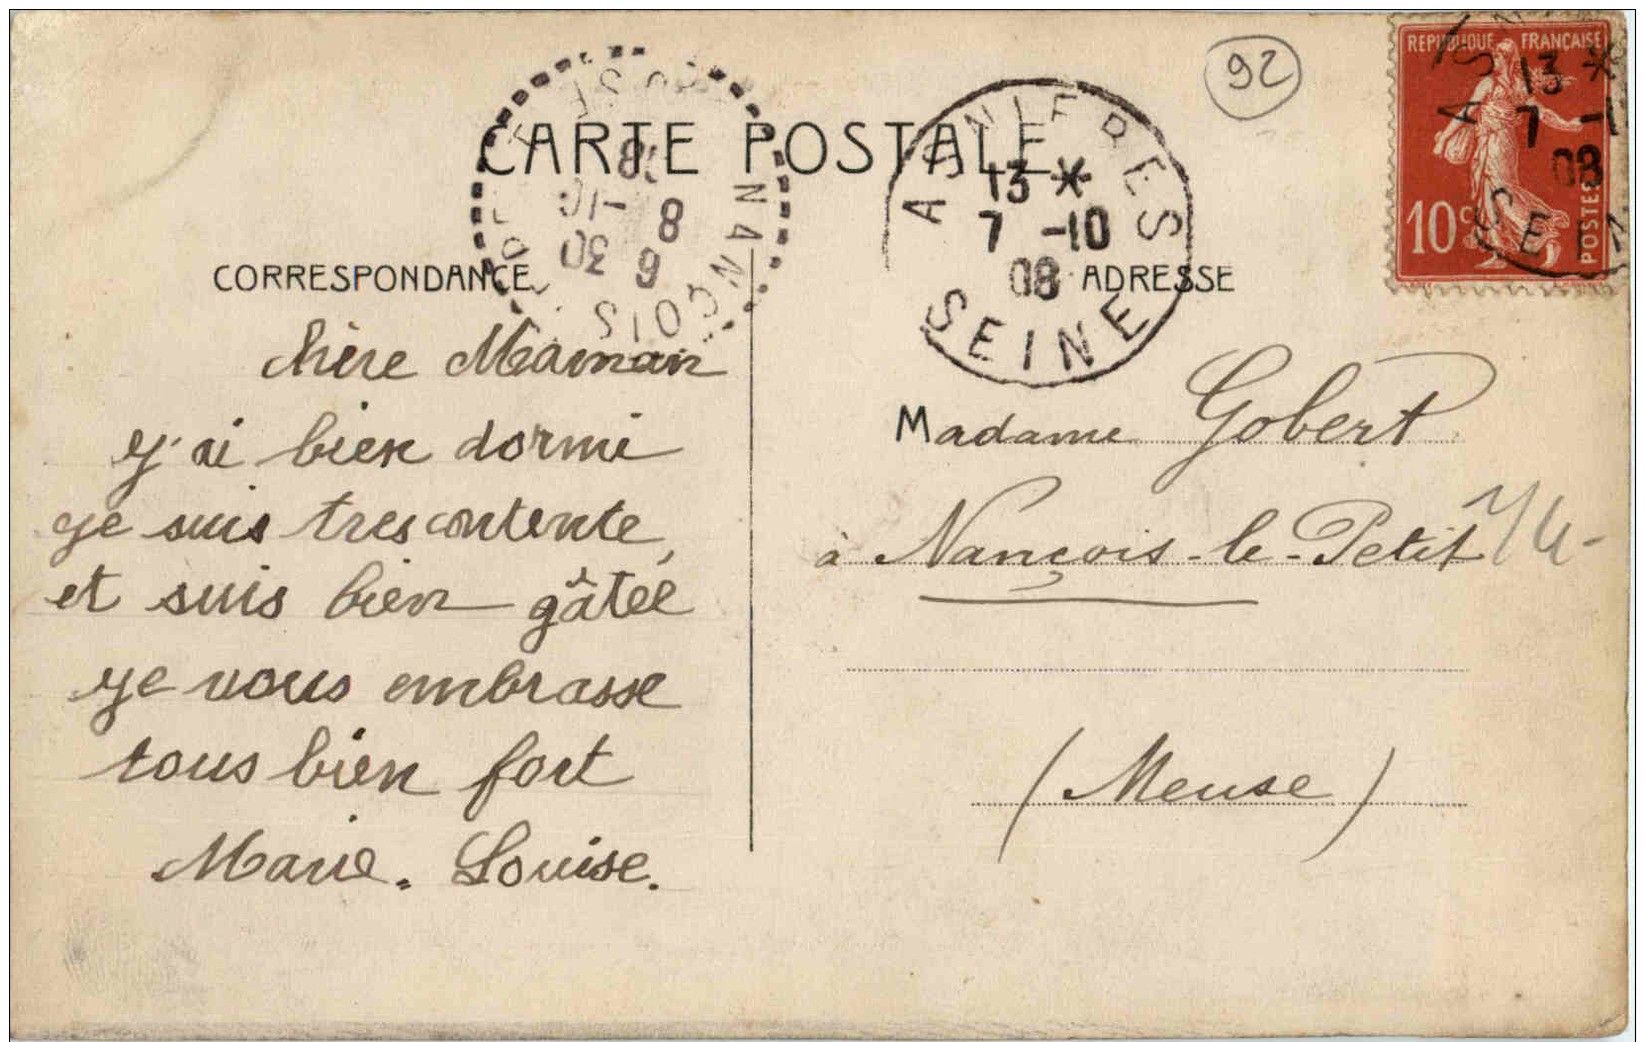 92
REPUBLIQUE FRANÇAISE
10c
POSTES
CARTE POSTALE
ASNIERES
13 *
7 -10
08
SEINE
NANÇOIS
8 -10
08
CORRESPONDANCE
ADRESSE
Chère Maman
j'ai bien dormi
je suis tres contente,
et suis bien gâtée
je vous embrasse
tous bien fort
Marie. Louise.
Madame Gobert
à Nançois-le-Petit
(Meuse)